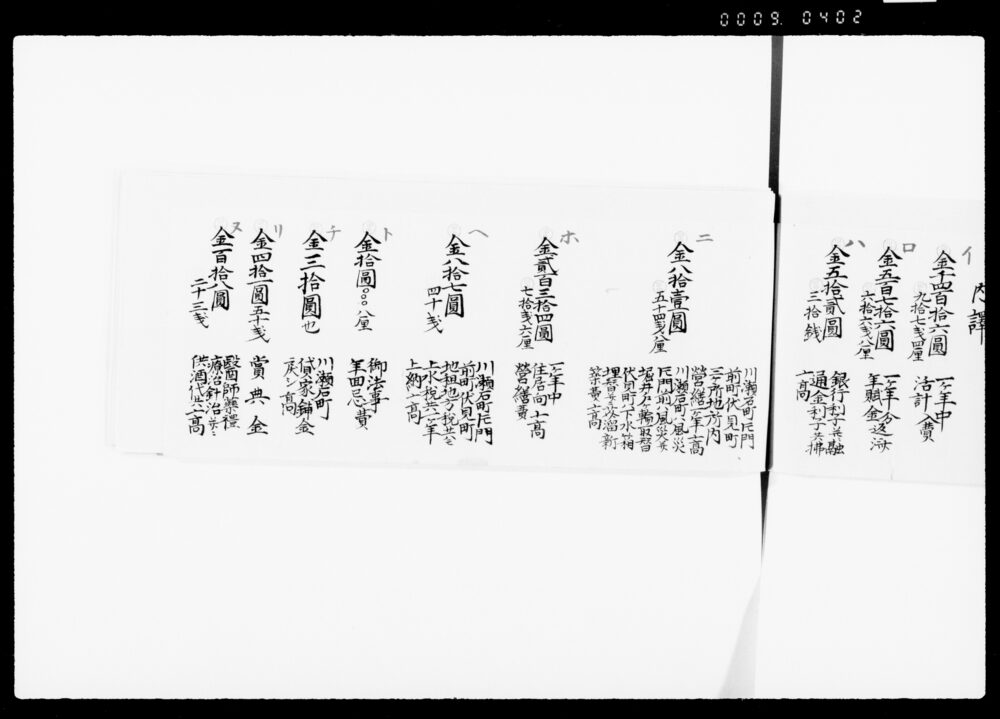 0009 0402
内譯
イ
金千四百拾六圓
九拾七戋四厘
一ヶ年中
活計入費
ロ
金五百七拾六圓
六拾六戋八厘
一ヶ年分
年賦金返済
ハ
金五拾貳圓
三拾銭
銀行利子并融
通金利子共拂
高
ニ
金八拾壹圓
五十四戋八厘
川瀬石町左門
前町伏見町
三ヶ所地所内
營繕一ヶ年高
川瀬石町ハ風災
左門前ハ風災并
堀井戸輪取替
伏見町ハ下水箱
埋替并溜新
築費高
ホ
金貳百三拾四圓
七拾戋六厘
一ヶ年中
住居向
營繕費
ヘ
金八拾七圓
四十戋
川瀬石町左門
前町伏見町
地租地方税并ニ
上水税共一ヶ年
上納高
ト
金拾圓〇〇八厘
御法事
年回忌費
チ
金三拾圓也
川瀬石町
貸家鋪金
戻シ高
リ
金四拾一圓五十戋
賞典金
ヌ
金百拾八圓
二十三戋
醫師藥禮
療治針治并ニ
供酒代高